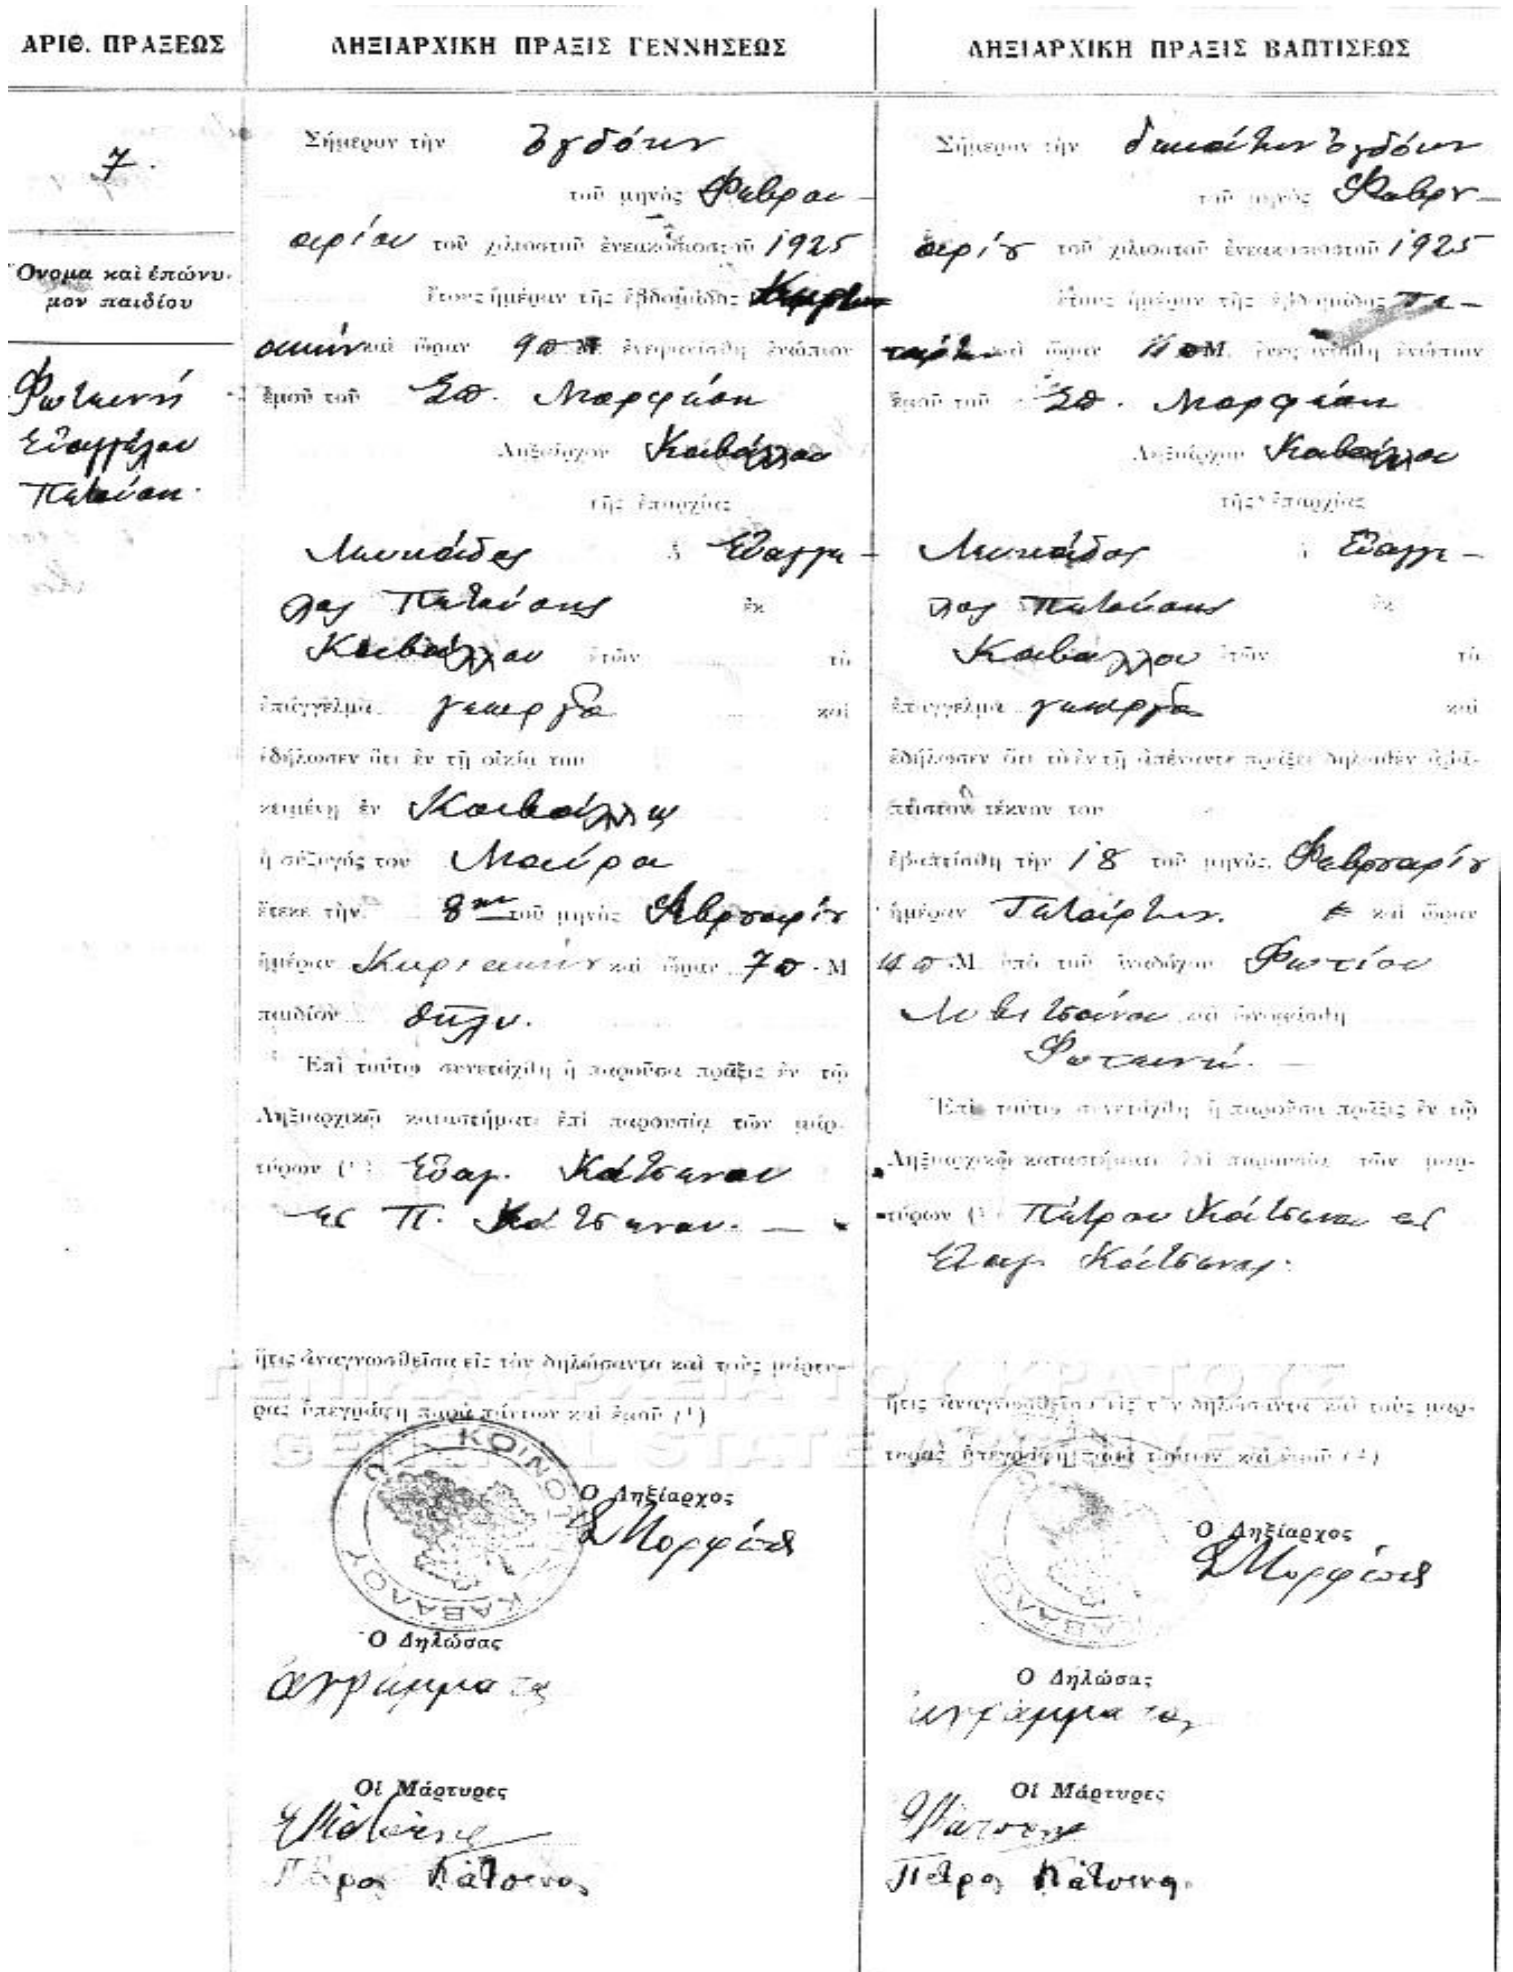 ΑΡΙΘ. ΠΡΑΞΕΩΣ
7.
Ὄνομα καὶ ἐπώνυ-
μον παιδίου
Φωτεινή
Εὐαγγέλου
ΛΗΞΙΑΡΧΙΚΗ ΠΡΑΞΙΣ ΓΕΝΝΗΣΕΩΣ
Σήμερον τὴν ὀγδόην
τοῦ μηνὸς Φεβρου-
αρίου τοῦ χιλιοστοῦ ἐνεακοσιοστοῦ 1925
ἔτους ἡμέραν τῆς ἑβδομάδος Κυρι-
ακὴν καὶ ὥραν 9 π.Μ. ἐνεφανίσθη ἐνώπιον
ἐμοῦ τοῦ Σπ. Μορφέση
Ληξιάρχου Καβάλλου
τῆς ἐπαρχίας
Λευκάδος ὁ Εὐάγγε-
λος
Καβάλλου ἐτῶν τὸ
ἐπάγγελμα γεωργὸς καὶ
ἐδήλωσεν ὅτι ἐν τῇ οἰκίᾳ του
κειμένῃ ἐν Καβάλλῳ
ἡ σύζυγός του Μαύρα
ἔτεκε τὴν 8ην τοῦ μηνὸς Φεβρουαρίου
ἡμέραν Κυριακὴν καὶ ὥραν 7 π.Μ
παιδίον θῆλυ.
Ἐπὶ τούτῳ συνετάχθη ἡ παροῦσα πρᾶξις ἐν τῷ
Ληξιαρχικῷ καταστήματι ἐπὶ παρουσίᾳ τῶν μαρ-
τύρων (1) Εὐαγ. Κάτσενου
καὶ Π. Κάτσενου. —
ἥτις ἀναγνωσθεῖσα εἰς τὸν δηλώσαντα καὶ τοὺς μάρτυ-
ρας ὑπεγράφη παρὰ πάντων καὶ ἐμοῦ (1)
ΚΟΙΝΟΤ
ΚΑΒΑΛΟΥ
Ὁ Ληξίαρχος
ΣΜορφέσης
Ὁ Δηλώσας
ἀγράμματος
Οἱ Μάρτυρες
Πέτρος Κάτσενος
ΛΗΞΙΑΡΧΙΚΗ ΠΡΑΞΙΣ ΒΑΠΤΙΣΕΩΣ
Σήμερον τὴν δεκάτην ὀγδόην
τοῦ μηνὸς Φεβρου-
αρίου τοῦ χιλιοστοῦ ἐνεακοσιοστοῦ 1925
ἔτους ἡμέραν τῆς ἑβδομάδος Τε-
τάρτην καὶ ὥραν 11 π.Μ. ἐνεφανίσθη ἐνώπιον
ἐμοῦ τοῦ Σπ. Μορφέση
Ληξιάρχου Καβάλλου
τῆς ἐπαρχίας
Λευκάδος ὁ Εὐάγγε-
λος ἐκ
Καβάλλου ἐτῶν τὸ
ἐπάγγελμα γεωργὸς καὶ
ἐδήλωσεν ὅτι τὸ ἐν τῇ ἀπέναντι πράξει δηλωθὲν ἀβά-
πτιστον τέκνον του
ἐβαπτίσθη τὴν 18 τοῦ μηνὸς Φεβρουαρίου
ἡμέραν Τετάρτην. καὶ ὥραν
π.Μ. ὑπὸ τοῦ ἀναδόχου Φωτίου
καὶ ὠνομάσθη
Φωτεινή. —
Ἐπὶ τούτῳ συνετάχθη ἡ παροῦσα πρᾶξις ἐν τῷ
Ληξιαρχικῷ καταστήματι ἐπὶ παρουσίᾳ τῶν μαρ-
τύρων (1) Πέτρου Κάτσενου καὶ
Εὐαγ. Κάτσενου.
ἥτις ἀναγνωσθεῖσα εἰς τὸν δηλώσαντα καὶ τοὺς μάρ-
τυρας ὑπεγράφη παρὰ πάντων καὶ ἐμοῦ (1)
ΚΑΒΑΛΟΥ
Ὁ Ληξίαρχος
ΣΜορφέσης
Ὁ Δηλώσας
ἀγράμματος
Οἱ Μάρτυρες
Πέτρος Κάτσενος
ΓΕΝΙΚΑ ΑΡΧΕΙΑ ΤΟΥ ΚΡΑΤΟΥΣ
GENERAL STATE ARCHIVES